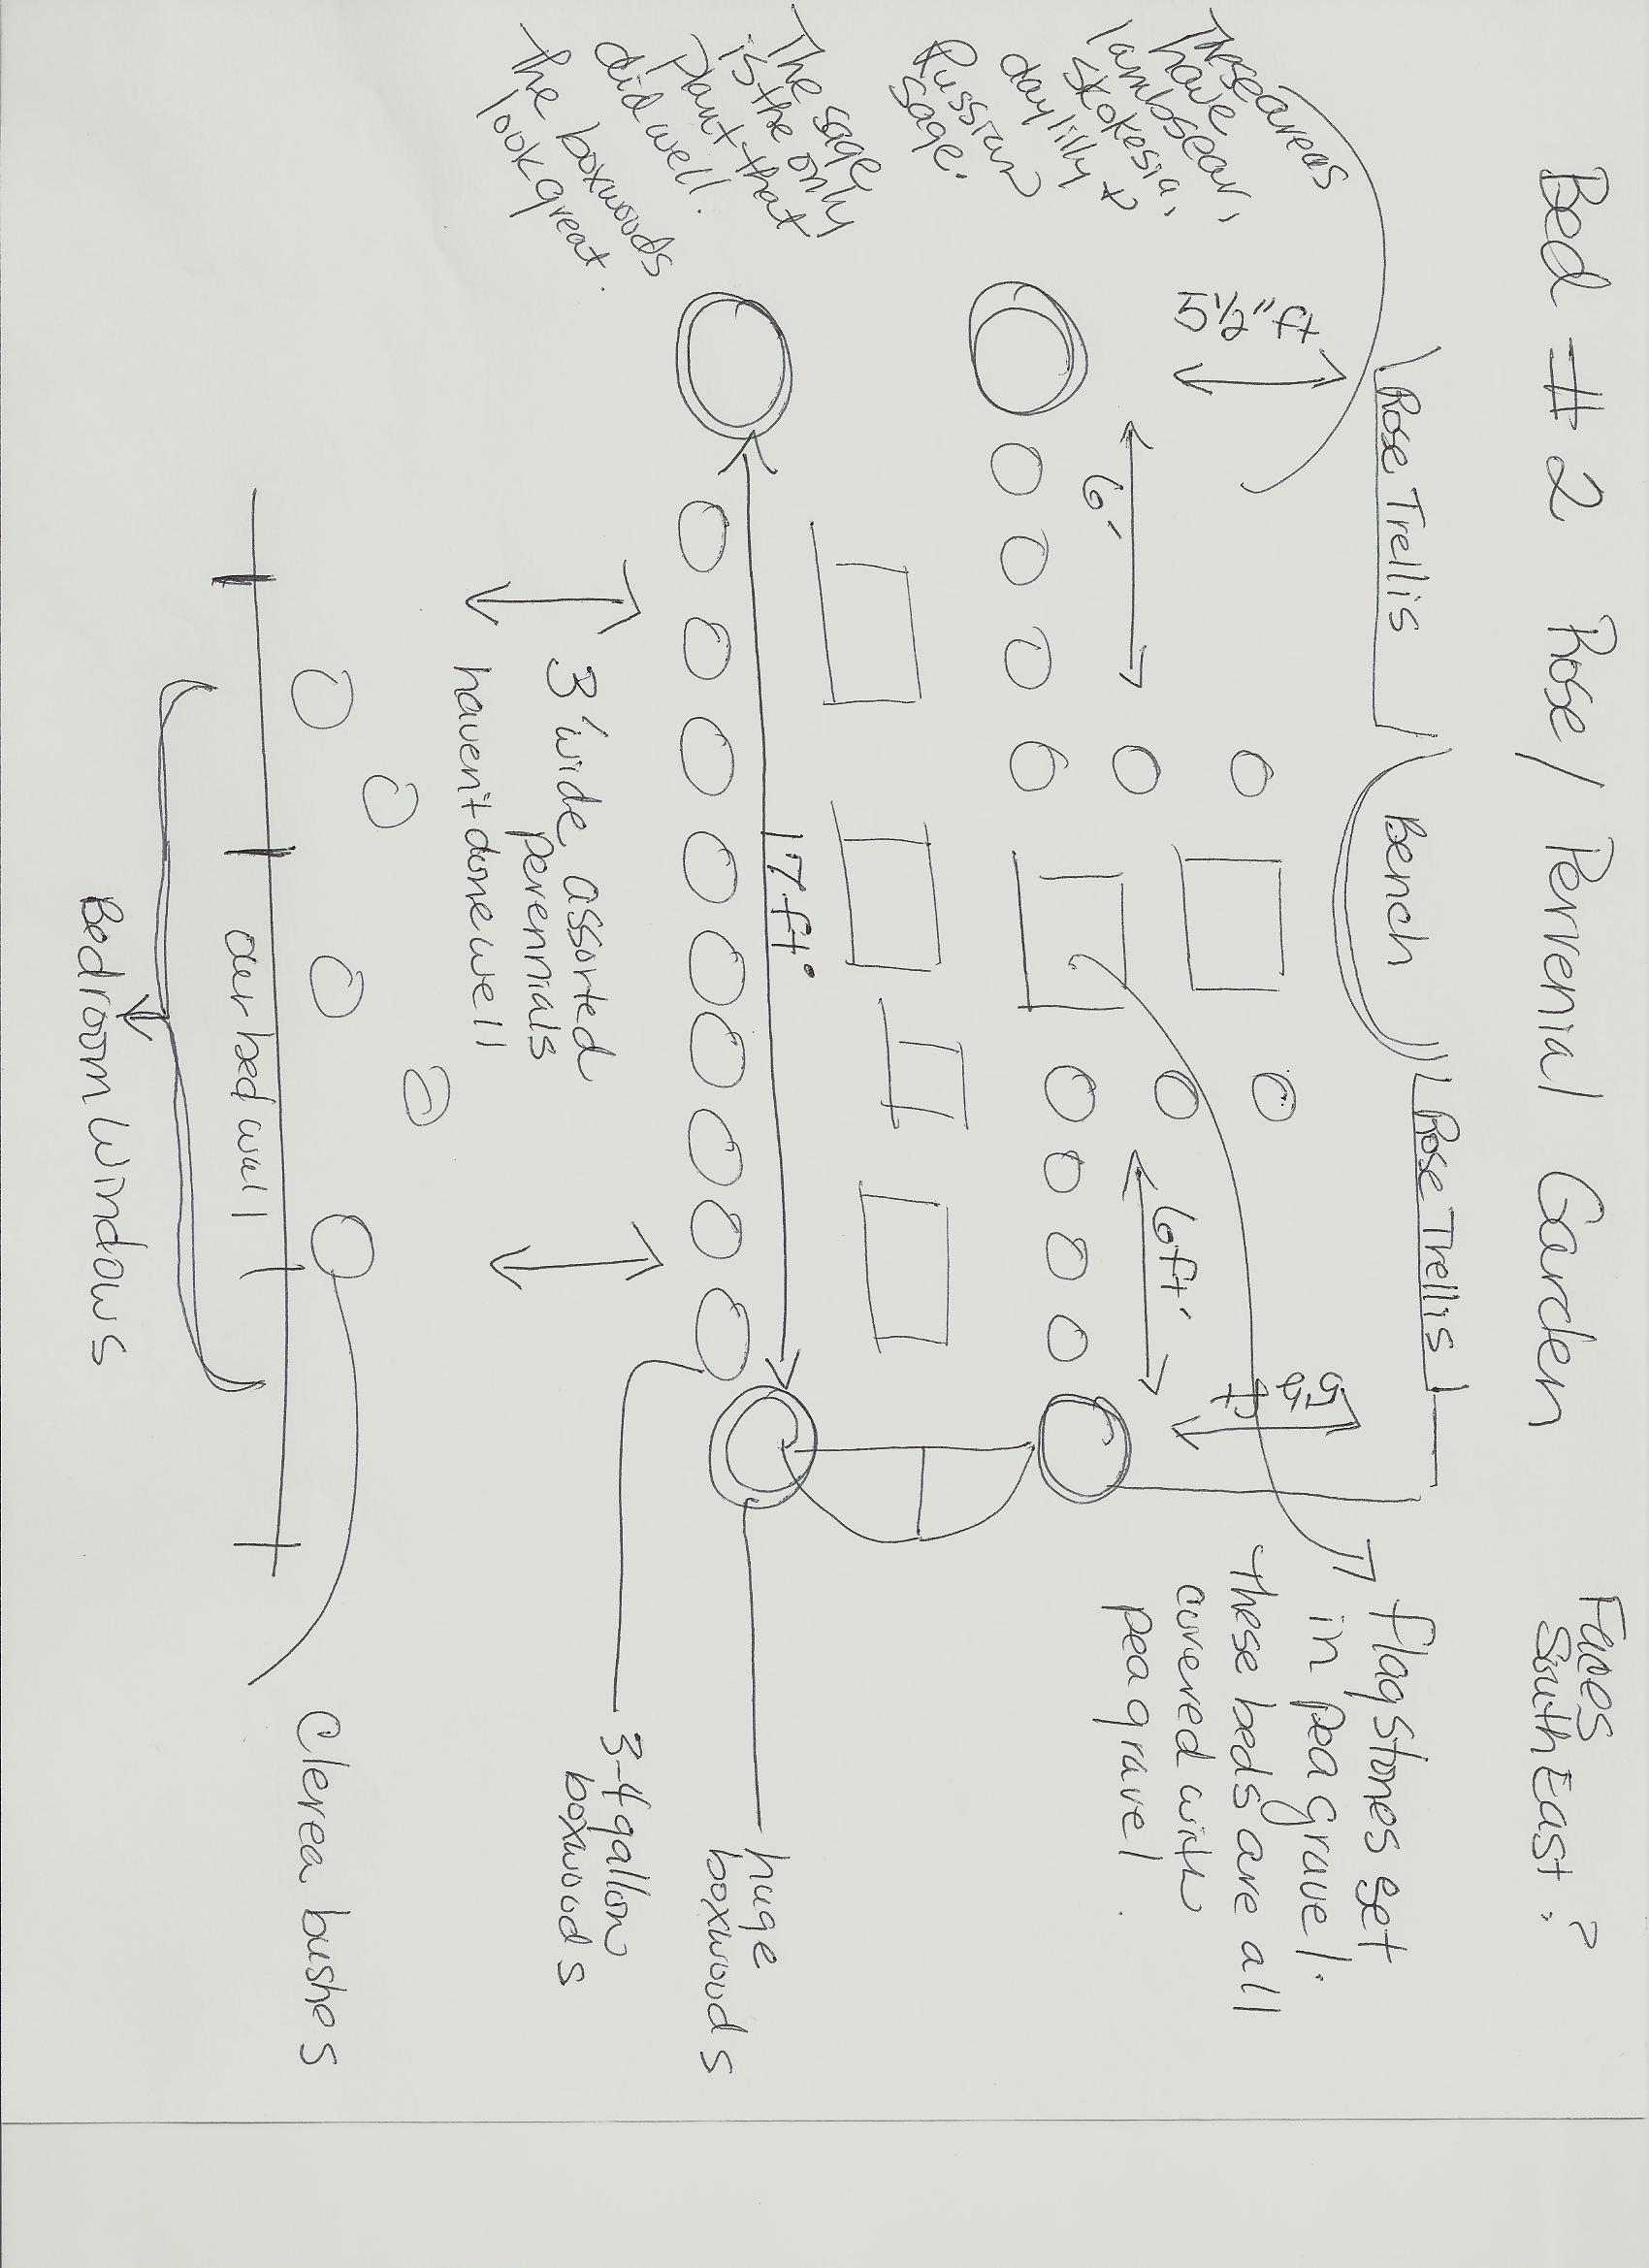 Bed # 2 Rose / Perrenial Garden
Faces
South East ?
These areas
have
lambsear,
stokesia,
daylilly &
Russian
sage.
The sage
is the only
plant that
did well.
The boxwoods
look great.
5 1/2" ft
Rose Trellis
Bench
Rose Trellis
6'
6 ft'
5 1/2
ft
17 ft.
flagstones set
in pea gravel.
These beds are all
covered with
pea gravel.
3' wide, assorted
perennials
haven't done well
huge
boxwoods
3-4 gallon
boxwoods
our bed wall
Bedroom Windows
Clerea bushes